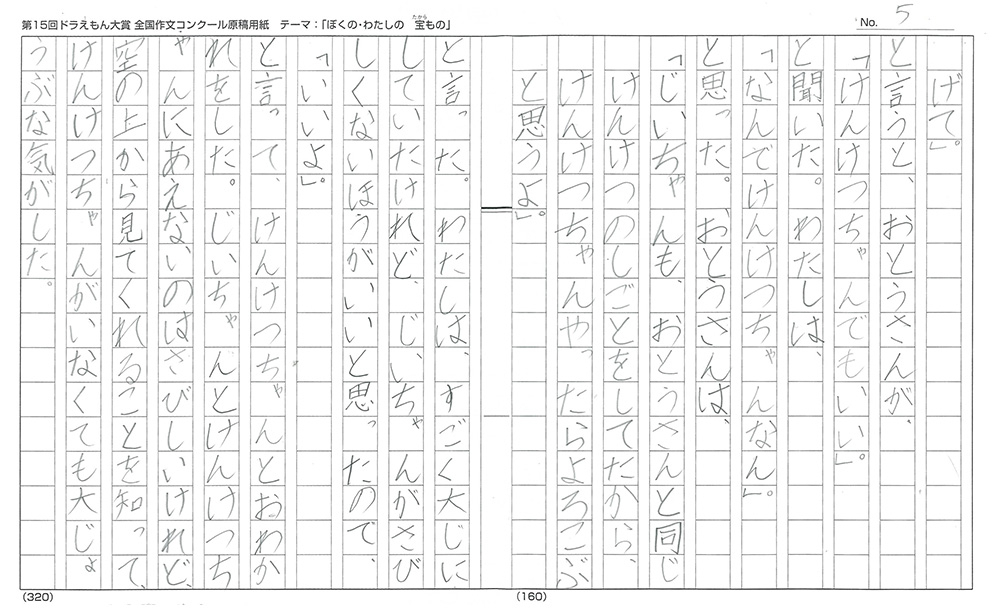 第15回ドラえもん大賞 全国作文コンクール原稿用紙　テーマ：「ぼくの・わたしの　宝もの」
たから
No. 5
げて」。
と言うと、おとうさんが、
「けんけつちゃんでもいい」。
と聞いた。わたしは、
「なんでけんけつちゃんなん」。
と思った。おとうさんは、
「じいちゃんも、おとうさんと同じ
けんけつのしごとをしてたから、
けんけつちゃんやったらよろこぶ
と思うよ」。
と言った。わたしは、すごく大じに
していたけれど、じいちゃんがさび
しくないほうがいいと思ったので、
「いいよ」。
と言って、けんけつちゃんとおわか
れをした。じいちゃんとけんけつち
ゃんにあえないのはさびしいけれど、
空の上から見てくれることを知って、
けんけつちゃんがいなくても大じょ
うぶな気がした。
(160)
(320)